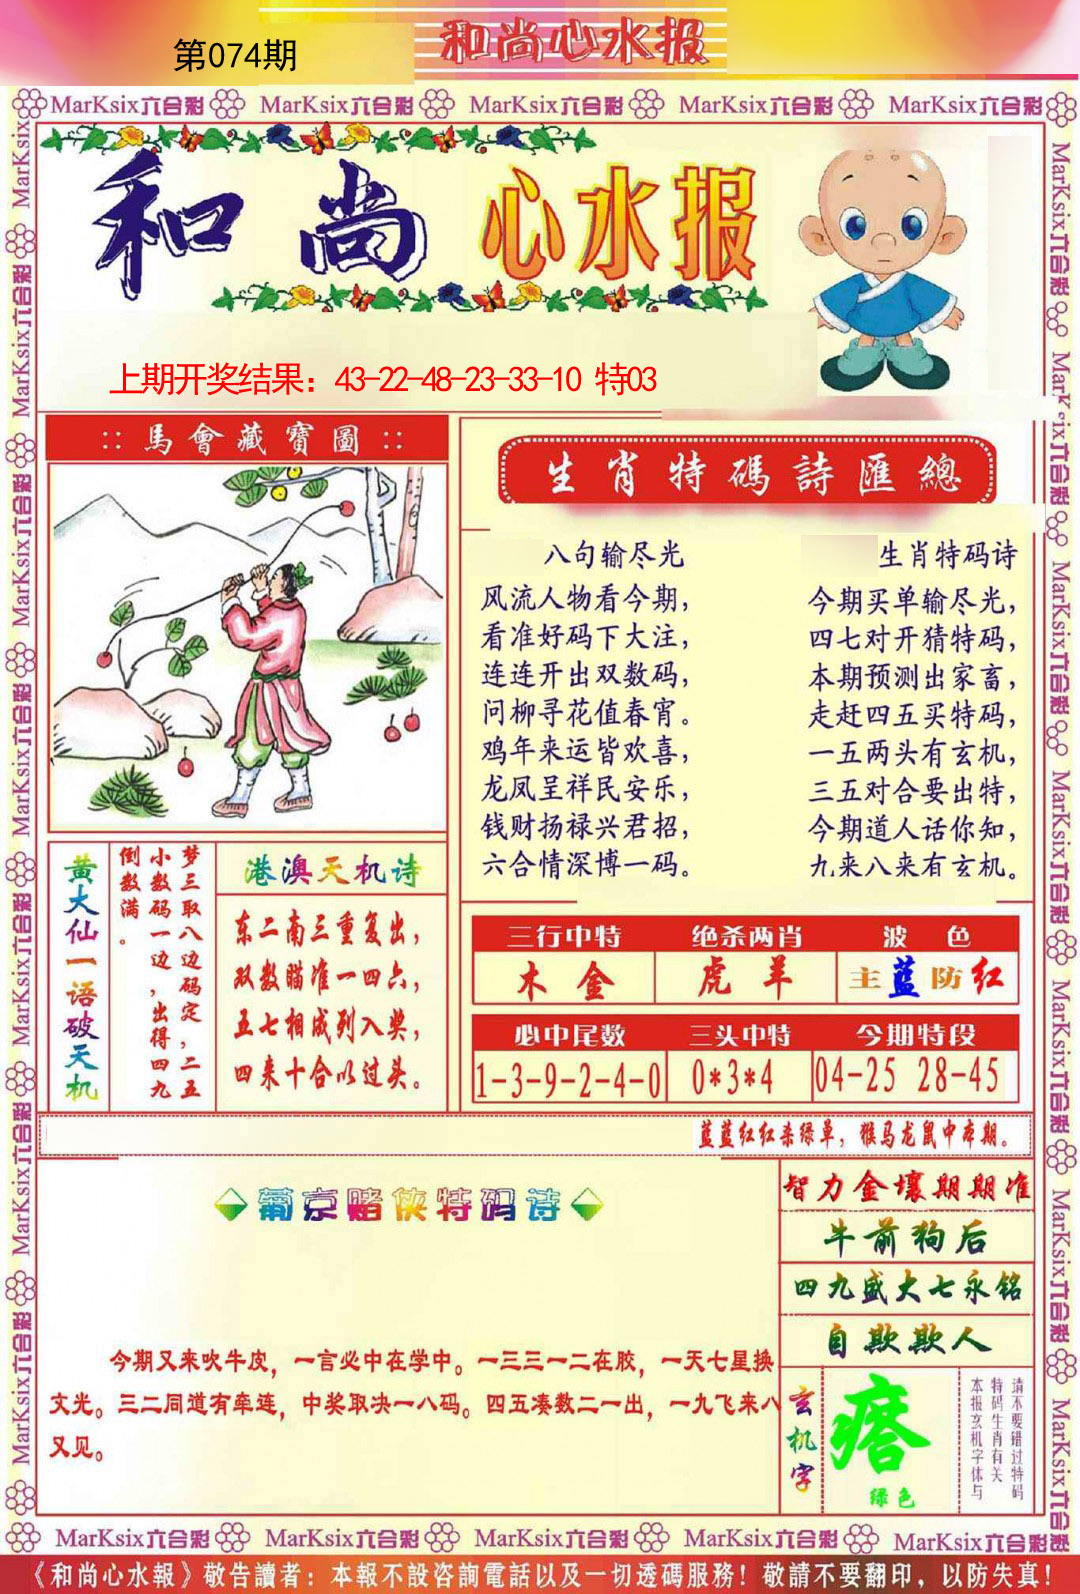 第074期
和尚心水报
MarKsix六合彩 MarKsix六合彩 MarKsix六合彩 MarKsix六合彩 MarKsix六合彩
和尚心水报
上期开奖结果：43-22-48-23-33-10 特03
::馬會藏寶圖::
生肖特碼詩匯總
八句输尽光
风流人物看今期，
看准好码下大注，
连连开出双数码，
问柳寻花值春宵。
鸡年来运皆欢喜，
龙凤呈祥民安乐，
钱财扬禄兴君招，
六合情深博一码。
生肖特码诗
今期买单输尽光，
四七对开猜特码，
本期预测出家畜，
走赶四五买特码，
一五两头有玄机，
三五对合要出特，
今期道人话你知，
九来八来有玄机。
黄大仙一语破天机
梦三取八边码定，二五
小数码一边，出得四九
倒数满。
港澳天机诗
东二南三重复出，
双数瞄准一四六，
五七相成列入奖，
四来十合以过头。
三行中特 绝杀两肖 波色
木金 虎羊 主蓝防红
必中尾数 三头中特 今期特段
1-3-9-2-4-0 0*3*4 04-25 28-45
蓝蓝红红杀绿单，猴马龙鼠中本期。
葡京赌侠特码诗
今期又来吹牛皮，一言必中在学中。一三三一二在胶，一天七星换
文光。三二同道有牵连，中奖取决一八码。四五凑数二一出，一九飞来八
又见。
智力金壤期期准
牛前狗后
四九盛大七永铭
自欺欺人
玄机字
瘩
绿色
请不要错过特码
特码生肖有关
本报玄机字体与
MarKsix六合彩 MarKsix六合彩 MarKsix六合彩 MarKsix六合彩 MarKsix六合彩
《和尚心水報》敬告讀者：本報不設咨詢電話以及一切透碼服務！敬請不要翻印，以防失真！